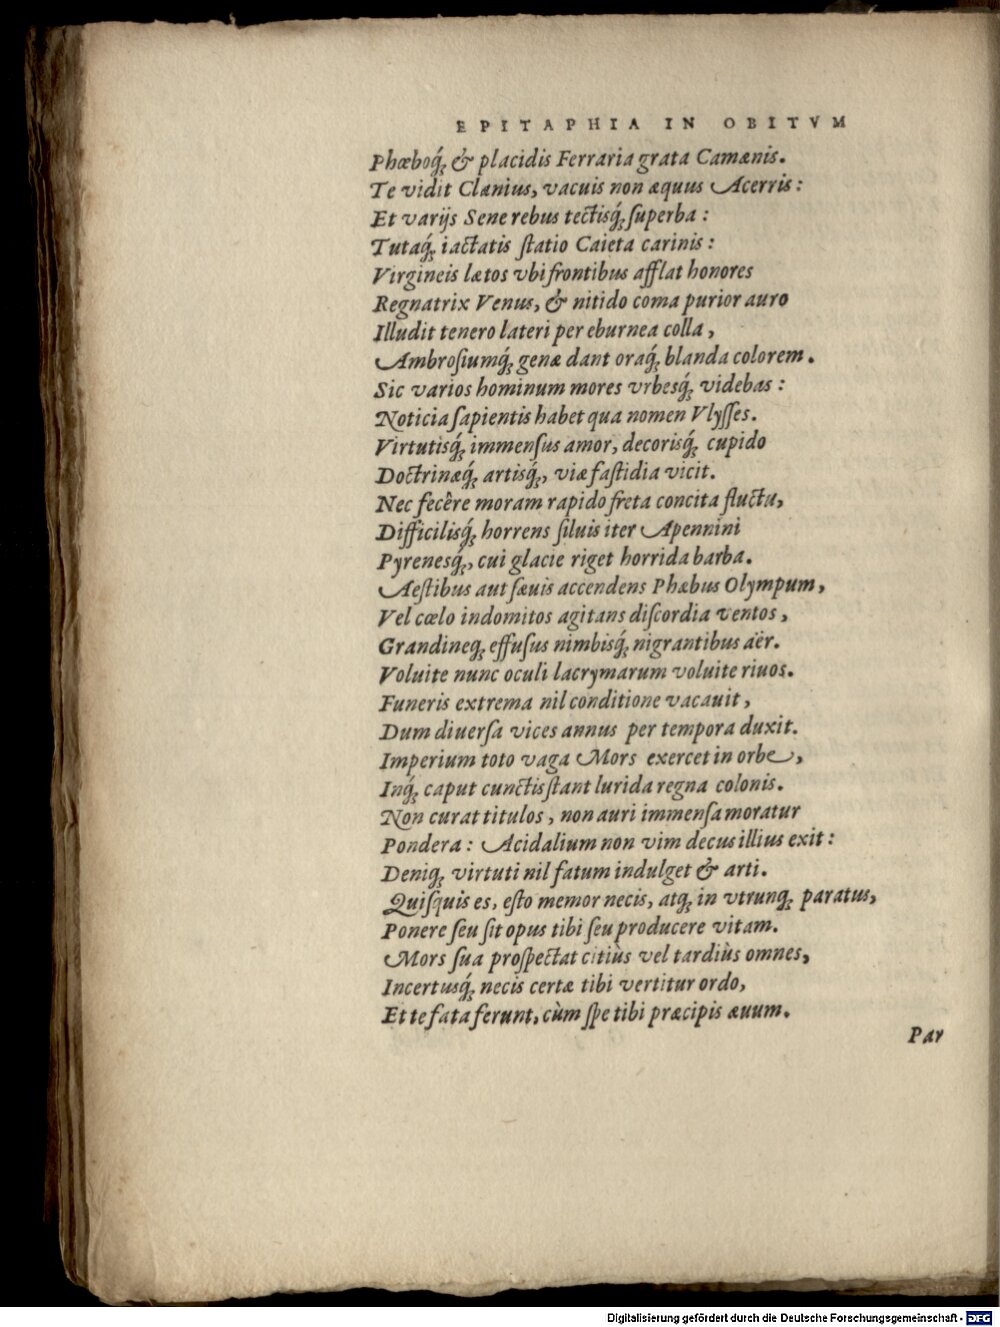 EPITAPHIA IN OBITVM
Phœboq́ꝫ & placidis Ferraria grata Camænis.
Te vidit Clænius, vacuis non æquus Acerris:
Et varijs Sene rebus tectisq́ꝫ superba:
Tutaq́ꝫ iactatis statio Caieta carinis:
Virgineis lætos vbi frontibus afflat honores
Regnatrix Venus, & nitido coma purior auro
Illudit tenero lateri per eburnea colla,
Ambrosiumq́ꝫ genæ dant oraq́ꝫ blanda colorem.
Sic varios hominum mores vrbesq́ꝫ videbas:
Noticia sapientis habet qua nomen Vlysses.
Virtutisq́ꝫ immensus amor, decorisq́ꝫ cupido
Doctrinæq́ꝫ artisq́ꝫ, viæ fastidia vicit.
Nec fecêre moram rapido freta concita fluctu,
Difficilisq́ꝫ horrens siluis iter Apennini
Pyrenesq́ꝫ, cui glacie riget horrida barba.
Aestibus aut sæuis accendens Phæbus Olympum,
Vel cœlo indomitos agitans discordia ventos,
Grandineqꝫ effusus nimbisq́ꝫ nigrantibus aër.
Voluite nunc oculi lacrymarum voluite riuos.
Funeris extrema nil conditione vacauit,
Dum diuersa vices annus per tempora duxit.
Imperium toto vaga Mors exercet in orbe,
Inq́ꝫ caput cunctis stant lurida regna colonis.
Non curat titulos, non auri immensa moratur
Pondera: Acidalium non vim decus illius exit:
Deniqꝫ virtuti nil fatum indulget & arti.
Quisquis es, esto memor necis, atqꝫ in vtrunqꝫ paratus,
Ponere seu sit opus tibi seu producere vitam.
Mors sua prospectat citiùs vel tardiùs omnes,
Incertusq́ꝫ necis certæ tibi vertitur ordo,
Et te fata ferunt, cùm spe tibi præcipis æuum.
Par
Digitalisierung gefördert durch die Deutsche Forschungsgemeinschaft - DFG